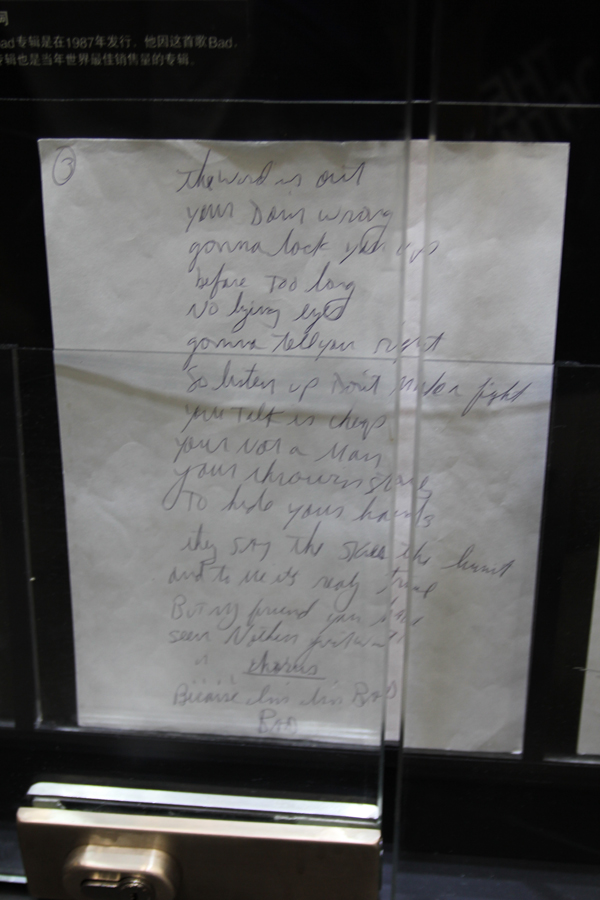 词
ad专辑是在1987年发行，他因这首歌Bad.
专辑也是当年世界最佳销售量的专辑。
3
the word is out
your Doin wrong
gonna lock you up
before Too long
No lying eyes
gonna Tell you right
So listen up Don't make a fight
your Talk is cheap
your Not a Man
your throwin stones
To hide your hands
they SAY the Skies the limit
and to me its realy true
But my friend you have
seen Nothin
chorus
Because Im Im BAD
BAD